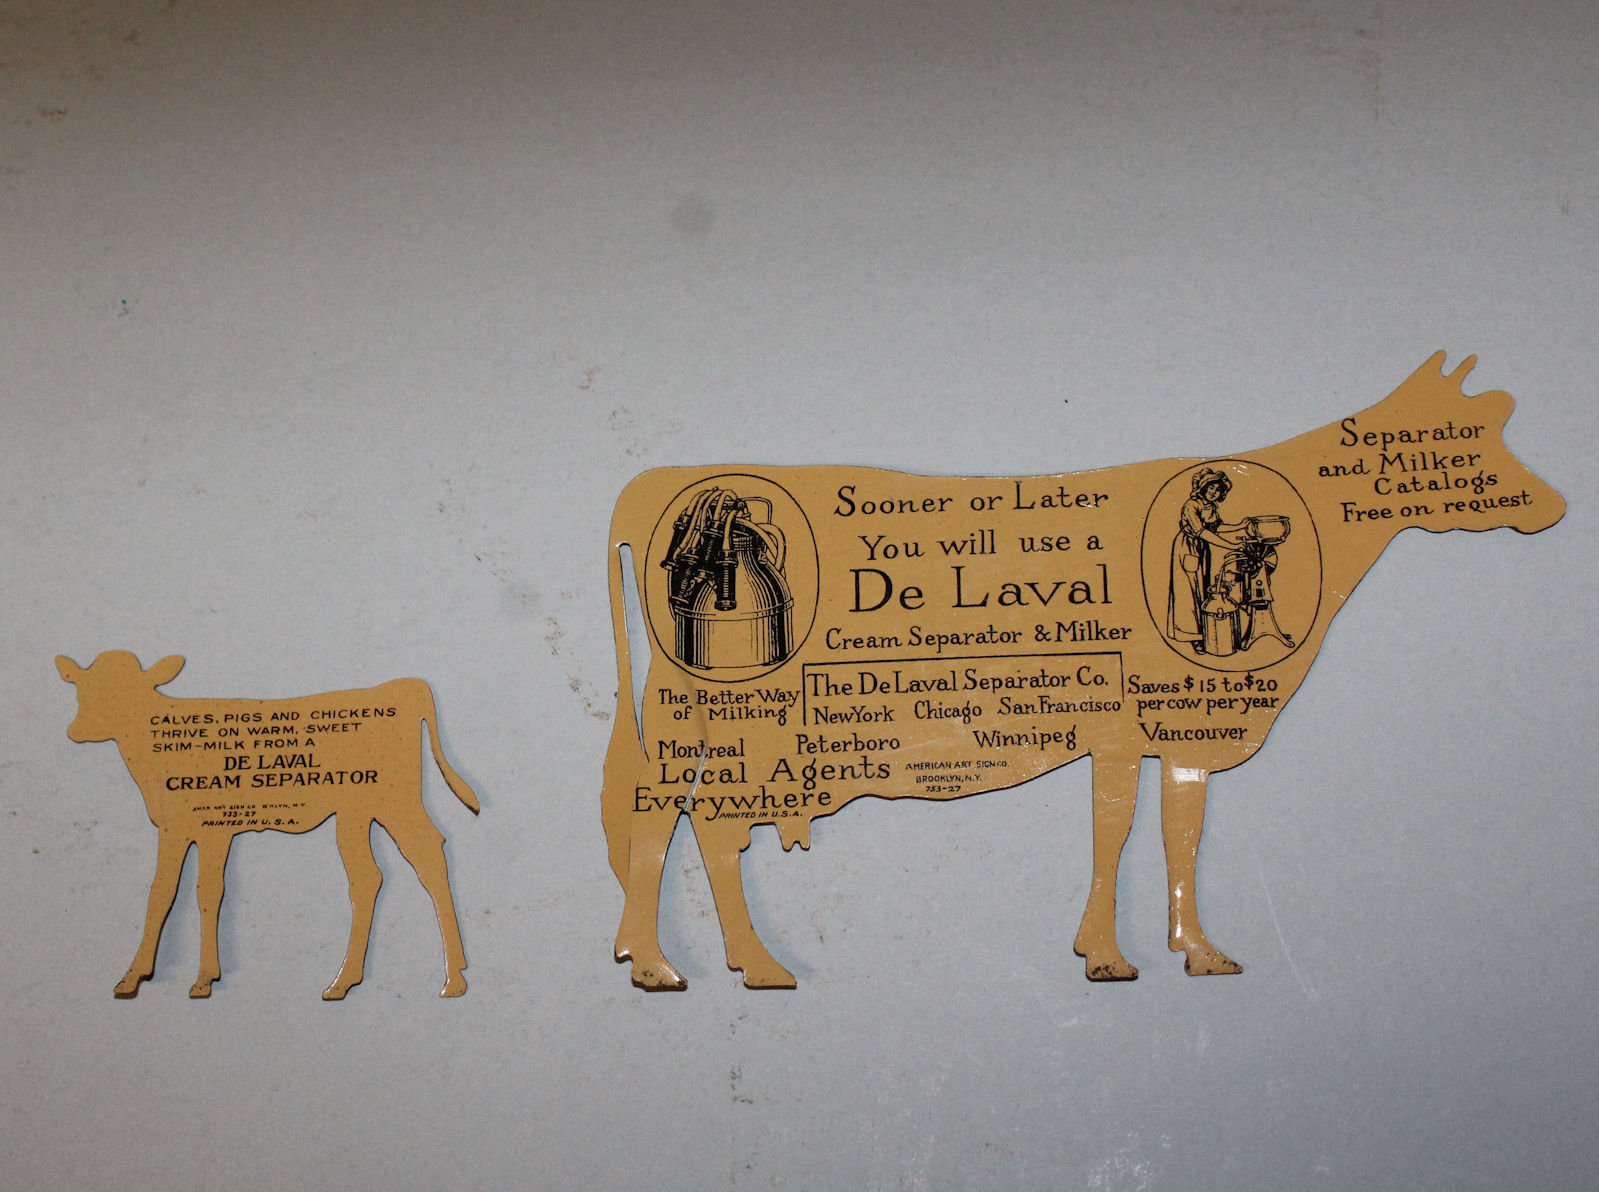 CALVES, PIGS AND CHICKENS
THRIVE ON WARM, SWEET
SKIM-MILK FROM A
DE LAVAL
CREAM SEPARATOR
AMER ART SIGN CO B'KLYN, N.Y.
753-27
PRINTED IN U.S.A.
Sooner or Later
You will use a
De Laval
Cream Separator & Milker
The Better Way
of Milking
The De Laval Separator Co.
New York Chicago San Francisco
Saves $15 to $20
per cow per year
Montreal Peterboro Winnipeg Vancouver
Local Agents
Everywhere
AMERICAN ART SIGN CO.
BROOKLYN, N.Y.
753-27
PRINTED IN U.S.A.
Separator
and Milker
Catalogs
Free on request